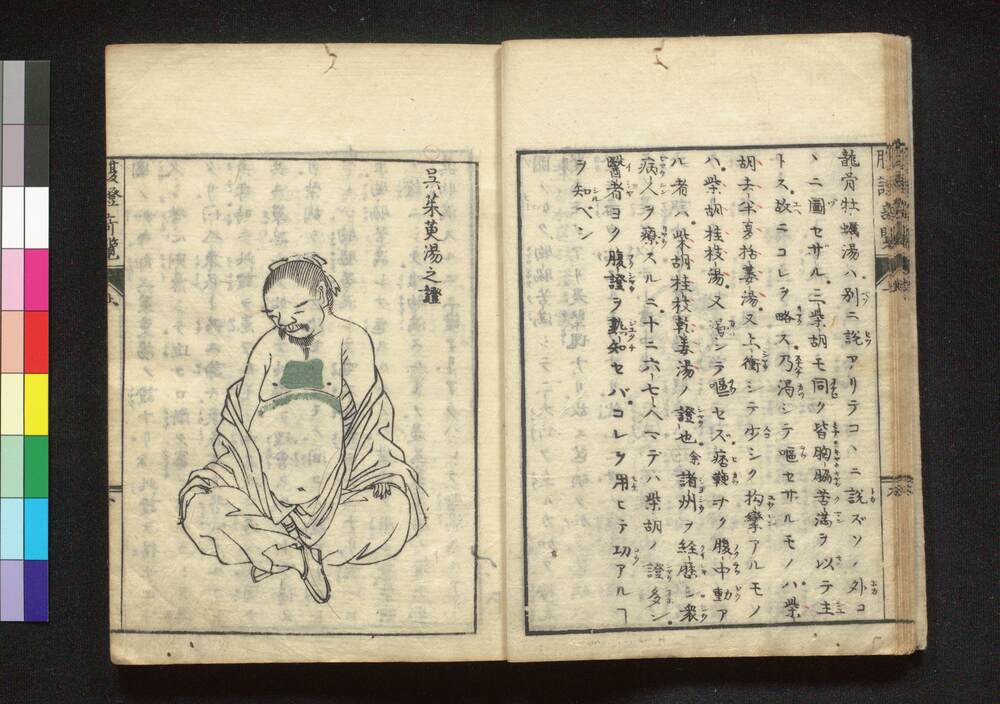 龍骨牡蠣湯ハ別ニ説アリテコヽニ説ズソノ外コ
ヽニ圖セザル二三柴胡モ同ク皆胸脇苦満ヲ以テ主
トス故ニコレヲ略ス乃渇シテ嘔セサルモノハ柴
胡去半夏括蔞湯又上衝シテ少シク拘攣アルモノ
ハ柴胡桂枝湯又渇シテ嘔セス痞鞕ナク腹中動ア
ル者ハ柴胡桂枝乾姜湯ノ證也余諸州ヲ経歴シ衆
病人ヲ療スルニ十ニ六七ハヘテハ柴胡ノ證多シ
醫者ヨク腹證ヲ熟知セバコレヲ用ヒテ功アルヿ
ヲ知ベシ
呉茱萸湯之證
腹證奇覽